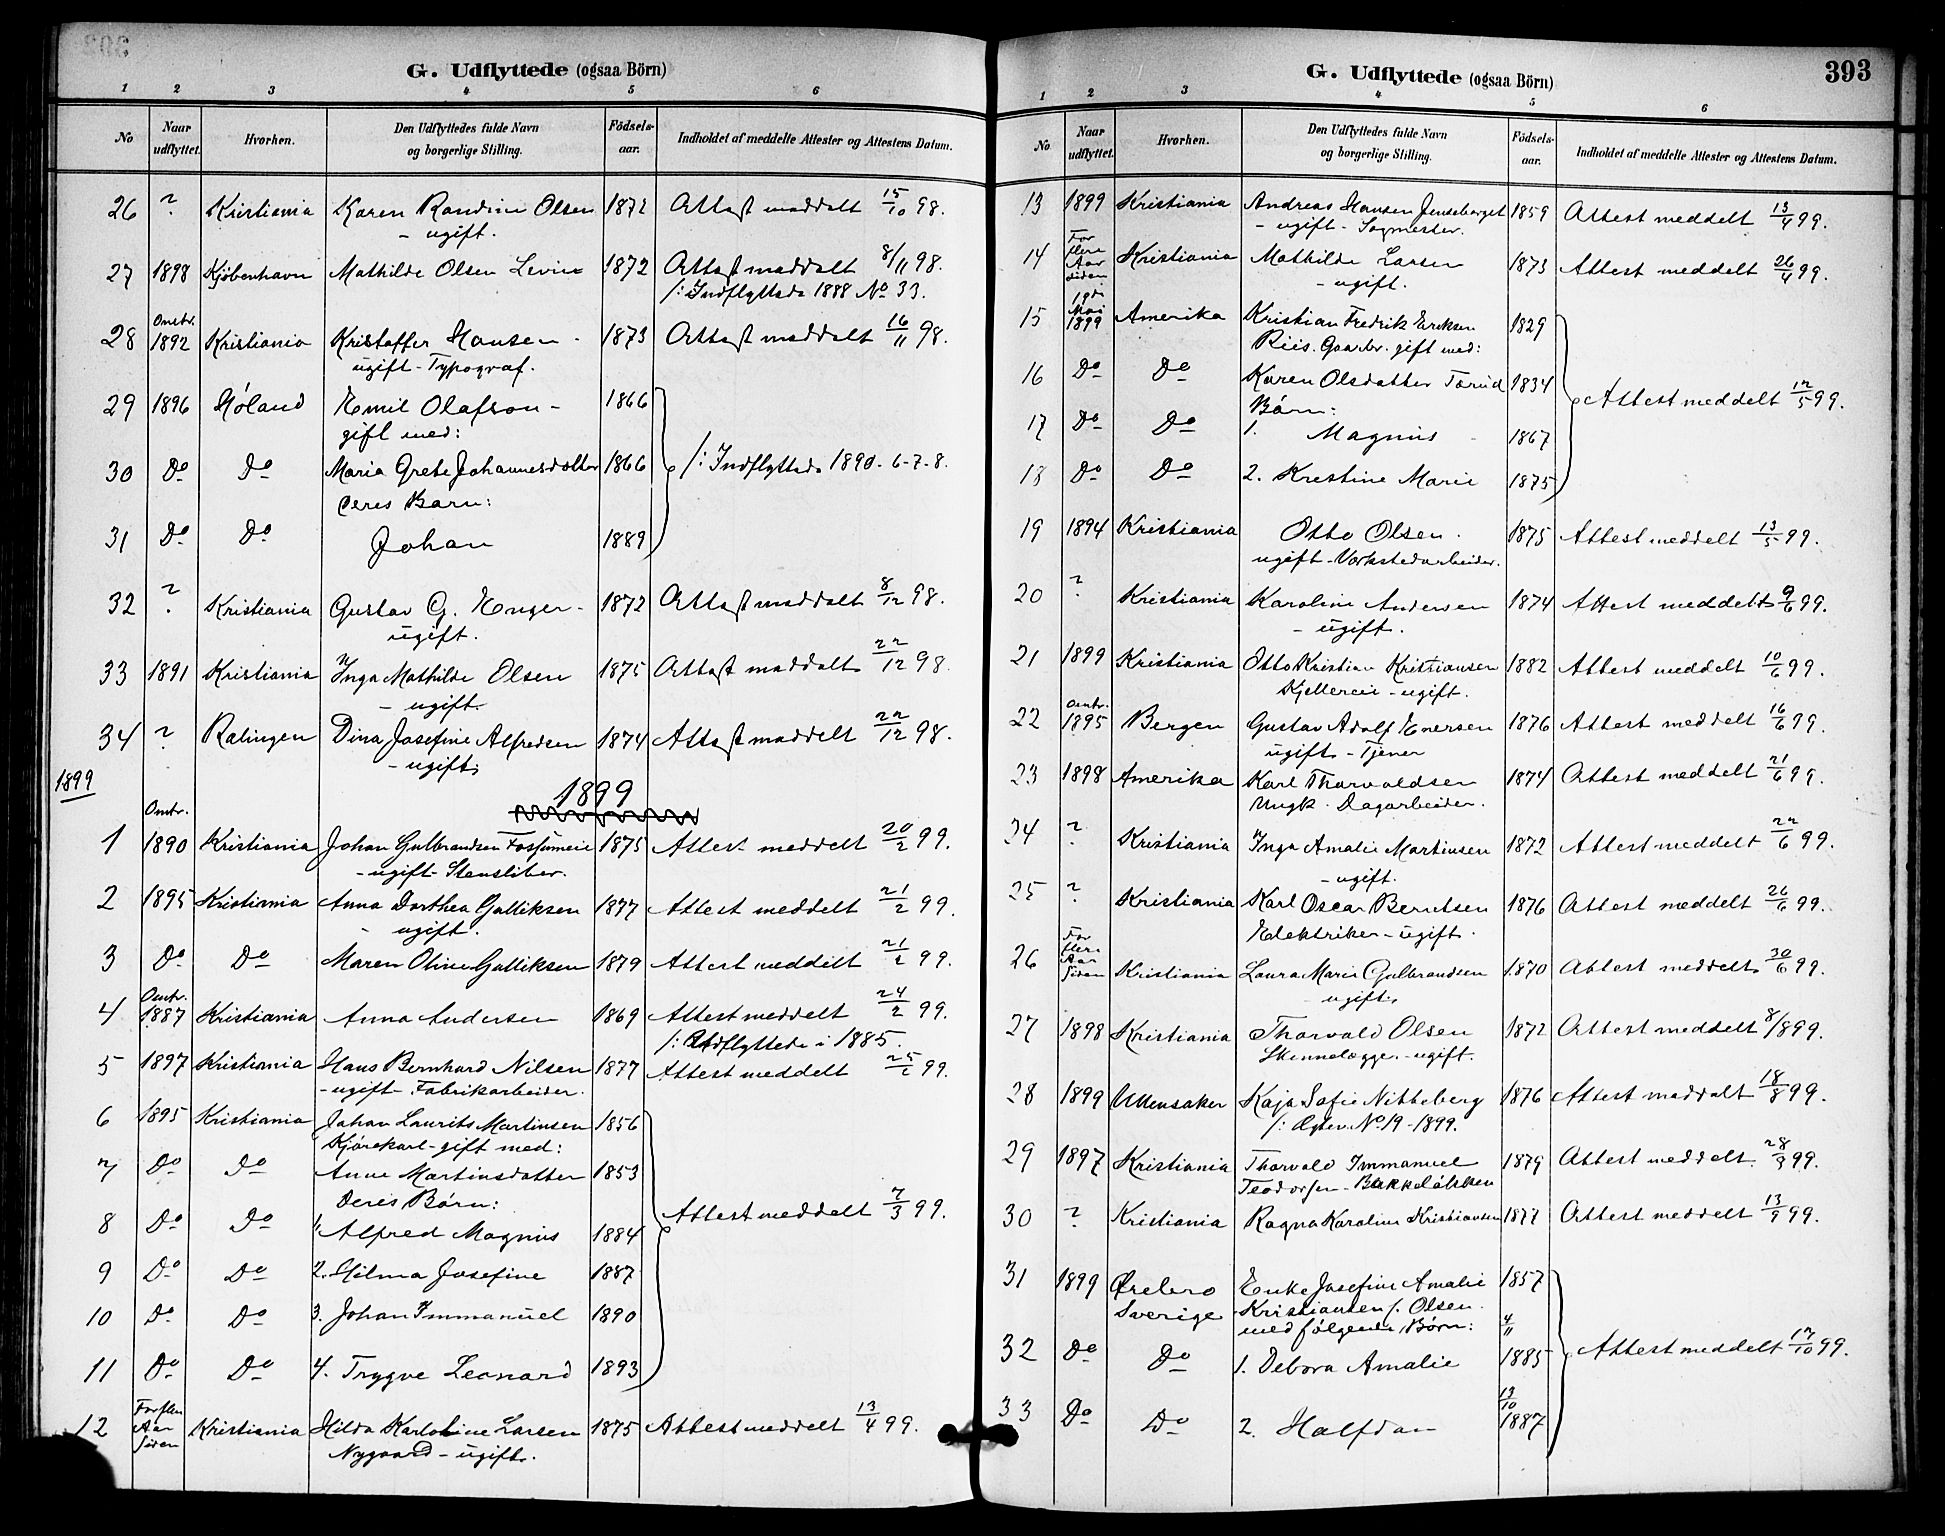 G. Udflyttede (ogsaa Börn)
1 2 3 4 5 6
No Naar udflyttet. Hvorhen. Den Udflyttedes fulde Navn og borgerlige Stilling. Födsels-aar. Indholdet af meddelte Attester og Attestens Datum.
26 ? Kristiania Karen Randine Olsen 1872 Attest meddelt 15/10 98.
- ugift.
27 1898 Kjøbenhavn Mathilde Olsen Levin 1872 Attest meddelt 8/11 98.
/: Indflyttede 1888 No 33.
28 Omtr. 1892 Kristiania Kristoffer Hansen - 1873 Attest meddelt 16/11 98.
ugift - Typograf.
29 1896 Høland Emil Olafson - 1866
gift med:
30 Do Do Maria Grete Johannesdatter 1866 /: Indflyttede 1890. 6-7-8.
Deres Barn:
31 Do Do Johan 1889
32 ? Kristiania Gustav G. Enger - 1872 Attest meddelt 8/12 98.
ugift.
33 1891 Kristiania Inga Mathilde Olsen 1875 Attest meddelt 22/12 98.
- ugift.
34 ? Rælingen Dina Josefine Alfredsen 1874 Attest meddelt 22/12 98.
- ugift.
1899
1899
1 Omtr. 1890 Kristiania Johan Gulbrandsen Fossumeie 1875 Attest meddelt 20/2 99.
- ugift - Stensliber.
2 1895 Kristiania Anna Dorthea Gulliksen 1877 Attest meddelt 21/2 99.
- ugift.
3 Do Do Maren Oline Gulliksen 1879 Attest meddelt 21/2 99.
4 Omtr. 1887 Kristiania Anna Andersen 1869 Attest meddelt 24/2 99.
/: Udflyttede i 1885.
5 1897 Kristiania Hans Bernhard Nilsen 1877 Attest meddelt 25/2 99.
- ugift - Fabrikarbeider.
6 1895 Kristiania Johan Laurits Martinsen 1856
Kjørekarl - gift med:
7 Do Do Anne Martinsdatter 1853
Deres Børn:
8 Do Do 1. Alfred Magnus 1884 Attest meddelt 7/3 99.
9 Do Do 2. Hilma Josefine 1887
10 Do Do 3. Johan Immanuel 1890
11 Do Do 4. Trygve Leonard 1893
12 For flere Aar siden Kristiania Hilda Karloline Larsen 1875 Attest meddelt 13/4 99.
Nygaard - ugift.
G. Udflyttede (ogsaa Börn) 393
1 2 3 4 5 6
No Naar udflyttet. Hvorhen. Den Udflyttedes fulde Navn og borgerlige Stilling. Födsels-aar. Indholdet af meddelte Attester og Attestens Datum.
13 1899 Kristiania Andreas Hansen Jenseberget 1859 Attest meddelt 13/4 99.
- ugift - Sagmester.
14 For flere Aar siden Kristiania Mathilde Larsen 1873 Attest meddelt 26/4 99.
- ugift.
15 Mai 1899 Amerika Kristian Fredrik Eriksen 1829
Riis. Gaardbr. gift med:
16 Do Do Karen Olsdatter Tærud 1834 Attest meddelt 12/5 99.
Børn:
17 Do Do 1. Magnus - 1867
18 Do Do 2. Krestine Marie 1875
19 1894 Kristiania Otto Olsen. 1875 Attest meddelt 13/5 99.
ugift - Værkstedarbeider.
20 ? Kristiania Karoline Andersen 1874 Attest meddelt 9/6 99.
- ugift.
21 1899 Kristiania Otto Kristian Kristiansen 1882 Attest meddelt 10/6 99.
Kjellereie - ugift.
22 Omtr. 1895 Bergen Gustav Adolf Enersen 1876 Attest meddelt 16/6 99.
ugift - Tjener
23 1898 Amerika Karl Thorvaldsen 1874 Attest meddelt 21/6 99.
Ungk. Dagarbeider.
24 ? Kristiania Inga Amalie Martinsen 1872 Attest meddelt 22/6 99.
- ugift.
25 ? Kristiania Karl Oscar Berntsen 1876 Attest meddelt 26/6 99.
Elektriker - ugift.
26 For flere Aar siden Kristiania Laura Marie Gulbrandsen 1870 Attest meddelt 30/6 99.
- ugift.
27 1898 Kristiania Thorvald Olsen 1872 Attest meddelt 8/8 99.
Skinnelægger - ugift.
28 1899 Ullensaker Kaja Sofie Nitteberg 1876 Attest meddelt 18/8 99.
/: Ægtev. No 19 - 1899.
29 1897 Kristiania Thorvald Immanuel 1879 Attest meddelt 28/8 99.
Teodorsen - Bakkeløkken
30 ? Kristiania Ragna Karoline Kristiansen 1877 Attest meddelt 13/9 99.
31 1899 Ørebro Enke Josefine Amalie 1857
Sverige Kristiansen f. Olsen
med følgende Børn:
32 Do Do 1. Debora Amalie 4/11 1885 Attest meddelt 17/10 99.
33 Do Do 2. Halfdan 13/10 1887